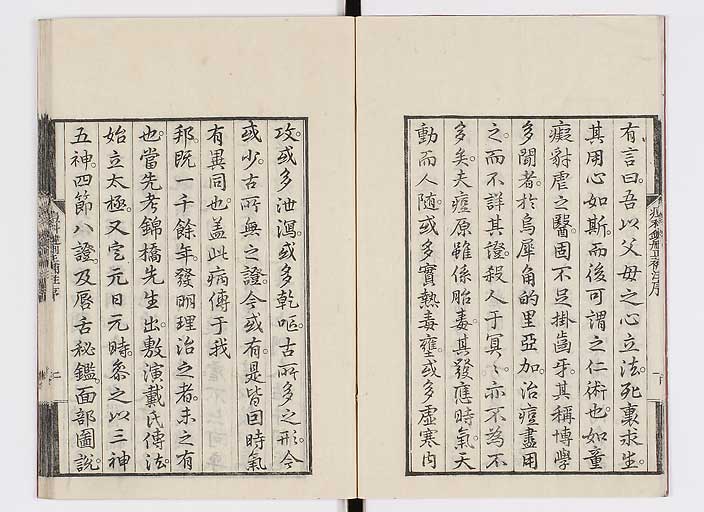 有言曰。吾以父母之心立法。死裏求生。
其用心如斯。而後可謂之仁術也。如童
癡豺虐之醫。固不足掛齒牙。其稱博學
多聞者。於烏犀角的里亞加。治痘盡用
之。而不詳其證。殺人于冥〻。亦不為不
多矣。夫痘原雖係胎毒。其發應時氣。天
動而人随。或多實熱毒壅。或多虚寒内
攻。或多泄瀉。或多乾嘔。古所多之形。今
或少。古所無之證。今或有。是皆因時氣
有異同也。盖此病傳于我
邦。既一千餘年。發明理治之者。未之有
也。當先考錦橋先生出。敷演戴氏傳法。
始立太極。又定元日元時。参之以三神
五神四節八證。及唇舌秘鑑。面部圖説。